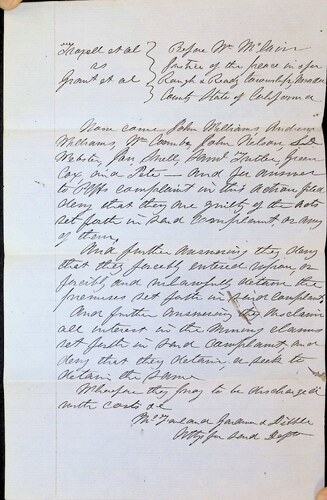 et al } Before Wm
vs } Justice of the peace in & for
Grant et al } Rough & Ready Township Nevada
County State of California
Now come John Williams Andrew
Williams, Wm John Nelson
Webster, Jas Saml Green
Cox and Pete — and for answer
to Plffs complaint in this action filed
deny that they are guilty of the acts
set forth in said complaint, or any
of them,
And further answering they deny
that they forcibly entered upon, or
forcibly and unlawfully detain the
premises set forth in said complaint,
And further answering they disclaim
all interest in the mining claims
set forth in said complaint, and
deny that they detain or seek to
detain the same
Wherefore they pray to be discharged
with costs &c
McFarland Gardner & Dibble
Attys for said Defts